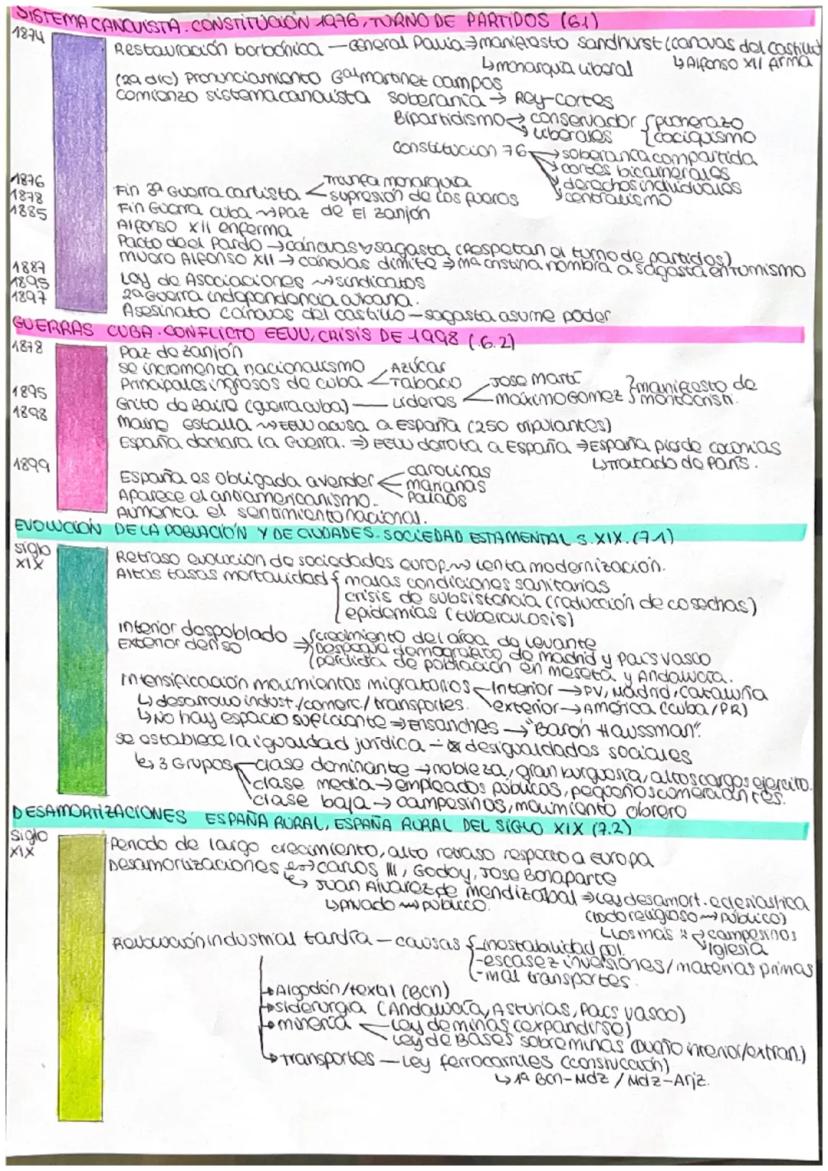 SISTEMA CANOVISTA. CONSTITUCIÓN 1976, TURNO DE PARTIDOS (6.1)
1874
Restauración borbónica — General Pavia ⇒ manifiesto sandhurst (canovas del castillo)
↳ monarquia liberal ↳ Alfonso XII firma
(29 dic) Pronunciamiento Gal martinet campos
Comienzo sistema canovista soberanía → Rey-cortes
Bipartidismo → conservador { pucherazo
→ liberales { caciquismo
Constitucion 76 → soberanía compartida
→ cortes bicamerales
→ derechos individuales
→ centralismo
1876
Fin 3ª Guerra carlista < Triunfa monarquia
supresion de los fueros
1878
Fin Guerra cuba ⇝ Paz de El zanjón
1885
Alfonso XII enferma
Pacto de el Pardo → cánovas y sagasta (respetan el turno de partidos)
Muere Alfonso XII → cánovas dimite → mª cristina nombra a sagasta en turnismo
1887
Ley de Asociaciones ⇝ sindicatos
1895
2ª Guerra independencia cubana.
1897
Asesinato cánovas del castillo — sagasta asume poder
GUERRAS CUBA. CONFLICTO EEUU, CRISIS DE 1998 (.6.2)
1878
Paz de zanjón
se incrementa nacionalismo
Principales ingresos de cuba < Azúcar
Tabaco
1895
Grito de Baire (guerra cuba) — Líderes < Jose Martí
maximo Gomez } manifiesto de montecristi.
1898
Maine estalla ⇝ EEUU acusa a España (250 tripulantes)
España declara la Guerra. ⇒ EEUU derrota a España ⇒ España pierde colonias
↳ tratado de París.
1899
España es obligada a vender < carolinas
marianas
Palaos
Aparece el antiamericanismo.
Aumenta el sentimiento nacional.
EVOLUCIÓN DE LA POBLACIÓN Y DE CIUDADES. SOCIEDAD ESTAMENTAL S.XIX. (7.1)
siglo XIX
Retraso evolución de sociedades europ ⇝ lenta modernización.
Altas tasas mortalidad { malas condiciones sanitarias
crisis de subsistencia (reducción de cosechas)
epidemias (tuberculosis)
Interior despoblado ⇒ { crecimiento del área de levante
Exterior denso { Despegue demográfico de madrid y País Vasco
{ pérdida de población en meseta y Andalucía.
Intensificación movimientos migratorios < Interior → PV, Madrid, Cataluña
exterior → América (cuba/PR)
↳ desarrollo indust./comerc/transportes.
↳ No hay espacio suficiente ⇒ Ensanches → "Barón Haussman".
se establece la igualdad jurídica — desigualdades sociales
↳ 3 Grupos < clase dominante → nobleza, gran burguesía, altos cargos ejercito.
clase media → empleados públicos, pequeños comerciantes.
clase baja → campesinos, movimiento obrero
DESAMORTIZACIONES ESPAÑA RURAL, ESPAÑA RURAL DEL SIGLO XIX (7.2)
siglo XIX
Periodo de largo crecimiento, alto retraso respecto a Europa
Desamortizaciones → carlos III, Godoy, Jose Bonaparte
↳ Juan Alvarez de mendizabal ⇒ Ley desamort. eclesiástica
↳ privado ⇝ público. (todo religioso ⇝ público)
↳ los mas x → campesinos
→ iglesia
Revolución industrial tardía — causas { -inestabilidad pol.
-escasez inversiones/materias primas
-mal transportes.
→ Algodón/textil (BCN)
→ siderurgia (Andalucía, Asturias, País vasco)
→ minería < Ley de minas (expandirse)
Ley de Bases sobre minas (Dueño interior/extran.)
→ transportes — Ley ferrocarriles (construcción)
↳ 1º BCN-Mdz / Mdz-Arjz.